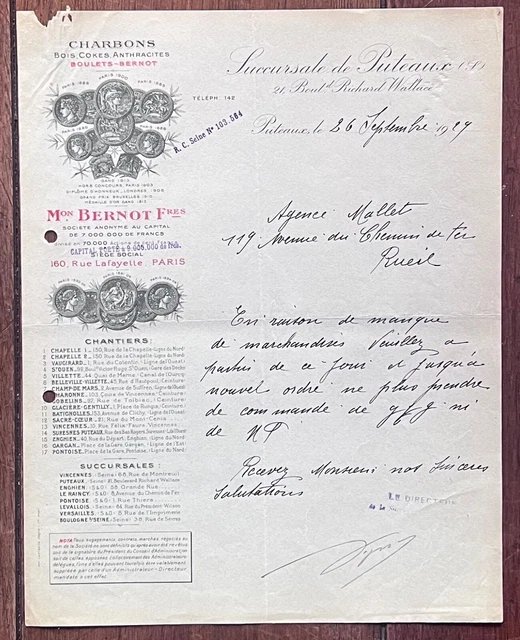 CHARBONS
BOIS, COKES, ANTHRACITES
BOULETS-BERNOT
Succursale de Puteaux (S)
21, Bould Richard Wallace
TÉLÉPH. 142
R. C. Seine No 103.564
Puteaux, le 26 Septembre 1927
PARIS 1900
GAND 1913
HORS CONCOURS, PARIS 1903
DIPLÔME D'HONNEUR, LONDRES, 1908
GRAND PRIX BRUXELLES 1910
MÉDAILLE D'OR GAND 1913
Mon BERNOT FRES
SOCIÉTÉ ANONYME AU CAPITAL
DE 7.000.000 DE FRANCS
70.000
CAPITAL PORTÉ à 9.000.000 de frcs
SIÈGE SOCIAL
160, Rue Lafayette PARIS
Agence Mallet
119 Avenue du Chemin de fer
Rueil
En raison de manque
de marchandises veuillez a
partir de ce jour et jusqu'à
nouvel ordre ne plus prendre
de commande de ni
de
Recevez Monsieur nos Sincères
Salutations
LE DIRECTEUR
CHANTIERS:
1 CHAPELLE 1 150, Rue de la Chapelle (Ligne du Nord)
2 CHAPELLE 2 150, Rue de la Chapelle (Ligne du Nord)
3 VAUGIRARD 1, Rue du Cotentin (Ligne de l'Ouest)
4 St OUEN, 92, Bould Victor Hugo, St Ouen, Gare des Docks
5 VILLETTE, 44, Quai de Marne - Canal de l'Ourcq
6 BELLEVILLE-VILLETTE, 43, Rue d'Hautpoul (Ceinture)
7 CHAMP-DE-MARS, 2, Avenue de Suffren
8 CHARONNE, 103, Cours de Vincennes (Ceinture)
9 GOBELINS
10 GLACIÈRE-GENTILLY, 1, Place de Rungis
11 BATIGNOLLES, 153, Avenue de Clichy (Ligne de l'Ouest)
12 SACRÉ-CŒUR, 81, Rue du Mont-Cenis
13 VINCENNES, 10, Rue Félix-Faure, Vincennes
14 SURESNES PUTEAUX
15 ENGHIEN, 40, Rue du Départ, Enghien (Ligne du Nord)
16 GARGAN, Place de la Gare, Gargan (Ligne de l'Est)
17 PONTOISE, Place de la Gare, Pontoise (Ligne du Nord)
SUCCURSALES:
VINCENNES - (Seine) 66, Rue de Montreuil
PUTEAUX (Seine) 21, Boulevard Richard Wallace
ENGHIEN (S&O) 38, Grande Rue
LE RAINCY (S&O) 8, Avenue du Chemin de Fer
PONTOISE (S&O) 1, Rue Thiers
LEVALLOIS (Seine) 64, Rue du Président Wilson
VERSAILLES (S&O) 8, Rue de l'Impérate
BOULOGNE s/SEINE (Seine) 38, Rue de Sèvres
NOTA: Tous engagements, contrats, marchés, régies ou
nom de la Société ne sont définitifs qu'après avoir été revêtus
soit de la signature du Président du Conseil d'Administration
soit de celles apposées collectivement des Administrateurs
délégués, l'une d'elles pouvant toutefois être valablement
suppléée par celle d'un Administrateur-Directeur
mandaté à cet effet.